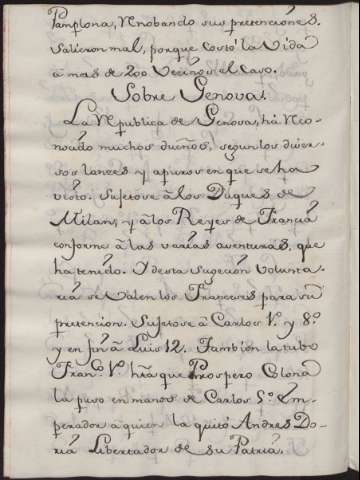 Pamplona, Renobando sus pretenciónes.
Salieron mal, porque costó la Vida
á mas de 200 Vecinos el caso.
Sobre Genova.
La Republica de Genova, há Reco-
nocido muchos dueños, segun los diver-
sos lances y apuros en que se ha
visto. Sujetose á los Duques de
Milan, y á los Reyes de Francia
conforme á las varias aventuras, que
ha tenido. Y desta sugecion Volunta-
ria se valen los Franceses para su
pretencion. Sujetose á Carlos Vº. y 8º.
y en fin á Luis 12. Tambien la tubo
Franco. Vº. hta. que Prospero Colona
la puso en manos de Carlos 5º. Em-
perador á quien la quitó Andres Do-
ria Libertador de su Patria.